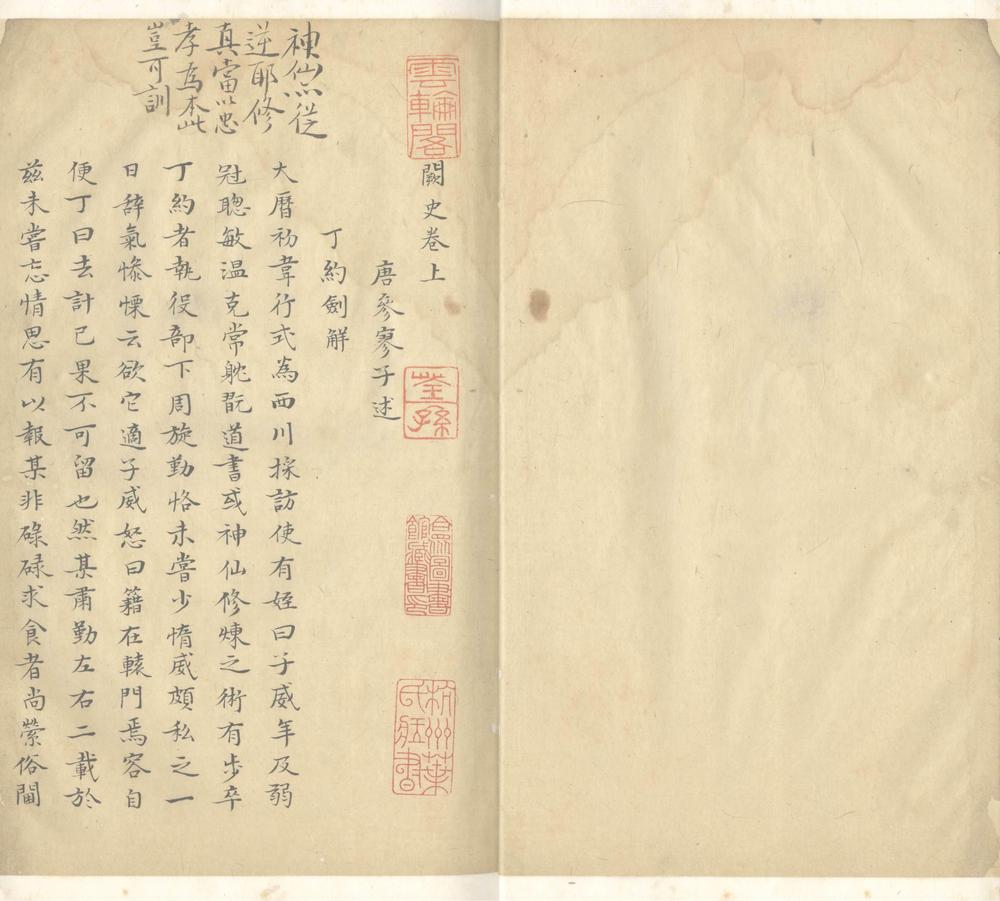 雲輪閣
闕史卷上
荃孫
合衆圖書館藏書印
杭州葉氏藏書
唐參寥子述
丁約劍解
神仙亦從
逆耶修
真當以忠
孝為本此
豈可訓
大曆初韋行式為西川採訪使有姪曰子威年及弱
冠聰敏温克常躭翫道書或神仙修煉之術有步卒
丁約者執役部下周旋勤恪未嘗少惰威頗私之一
日辭氣慘慄云欲它適子威怒曰籍在轅門焉容自
便丁曰去計已果不可留也然某肅勤左右二載於
兹未嘗忘情思有以報某非碌碌求食者尚縈俗間